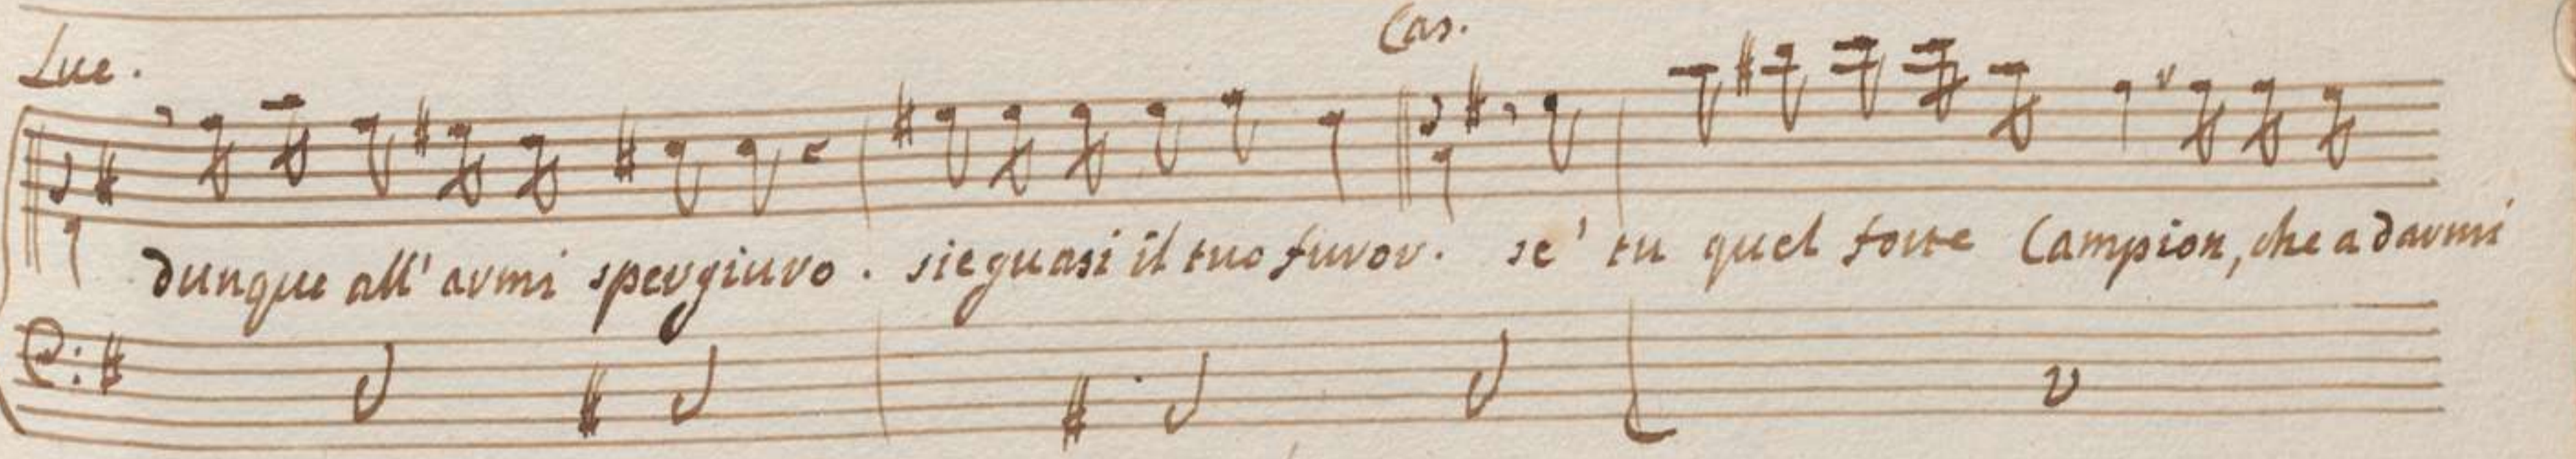 Luc.
Cas.
dunque all' armi spergiuro. sieguasi il tuo furor. se' tu quel forte Campion, che a darmi